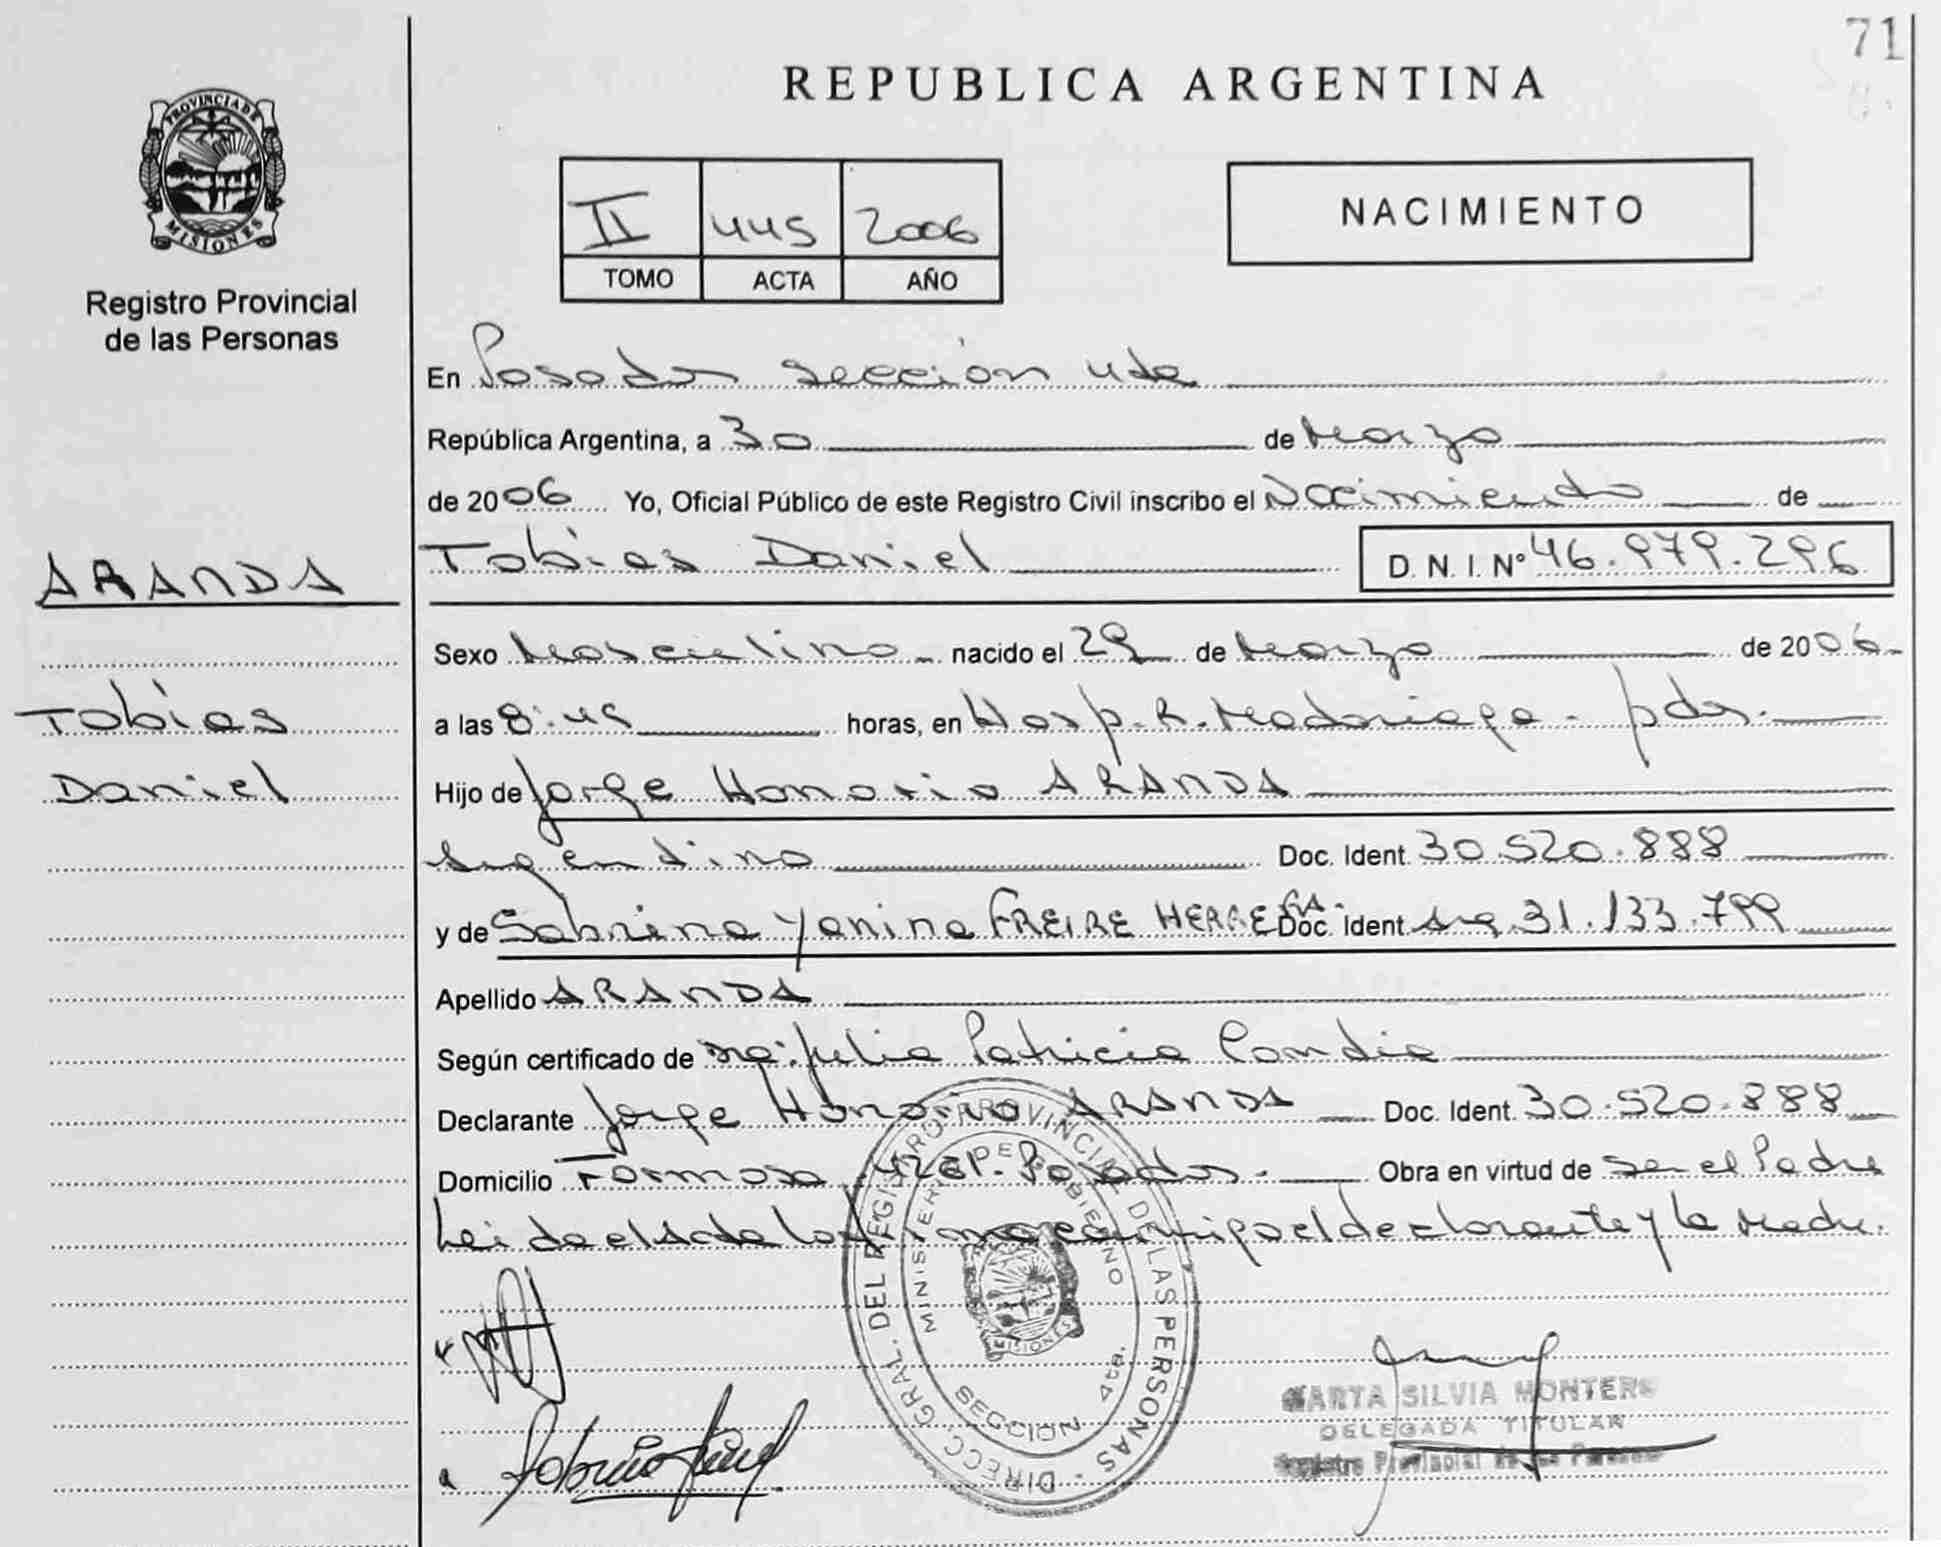 71
REPUBLICA ARGENTINA
PROVINCIA DE
MISIONES
Registro Provincial
de las Personas
II 445 2006
TOMO ACTA AÑO
NACIMIENTO
En Posadas sección 4ta
República Argentina, a 30 de Marzo
de 2006 Yo, Oficial Público de este Registro Civil inscribo el Nacimiento de
ARANDA
Tobias
Daniel
Tobias Daniel D.N.I. Nº 46.979.296
Sexo Masculino nacido el 29 de Marzo de 2006
a las 8:45 horas, en Hosp. R. Madariaga - pdas.
Hijo de Jorge Honorio ARANDA
Argentino Doc. Ident. 30.520.888
y de Sabrina Yanina FREIRE HERRERA Doc. Ident. Arg. 31.133.799
Apellido ARANDA
Según certificado de Julia Patricia Candia
Declarante Jorge Honorio ARANDA Doc. Ident. 30.520.888
Domicilio Formosa Posadas. Obra en virtud de ser el Padre
Leida el Acta la firma conmigo el declarante y la Madre.
DIRECC. GRAL. DEL REGISTRO PROVINCIAL DE LAS PERSONAS
MINISTERIO DE GOBIERNO
MISIONES
SECCION 4ta.
MARTA SILVIA MONTERO
DELEGADA TITULAR
Registro Provincial de las Personas